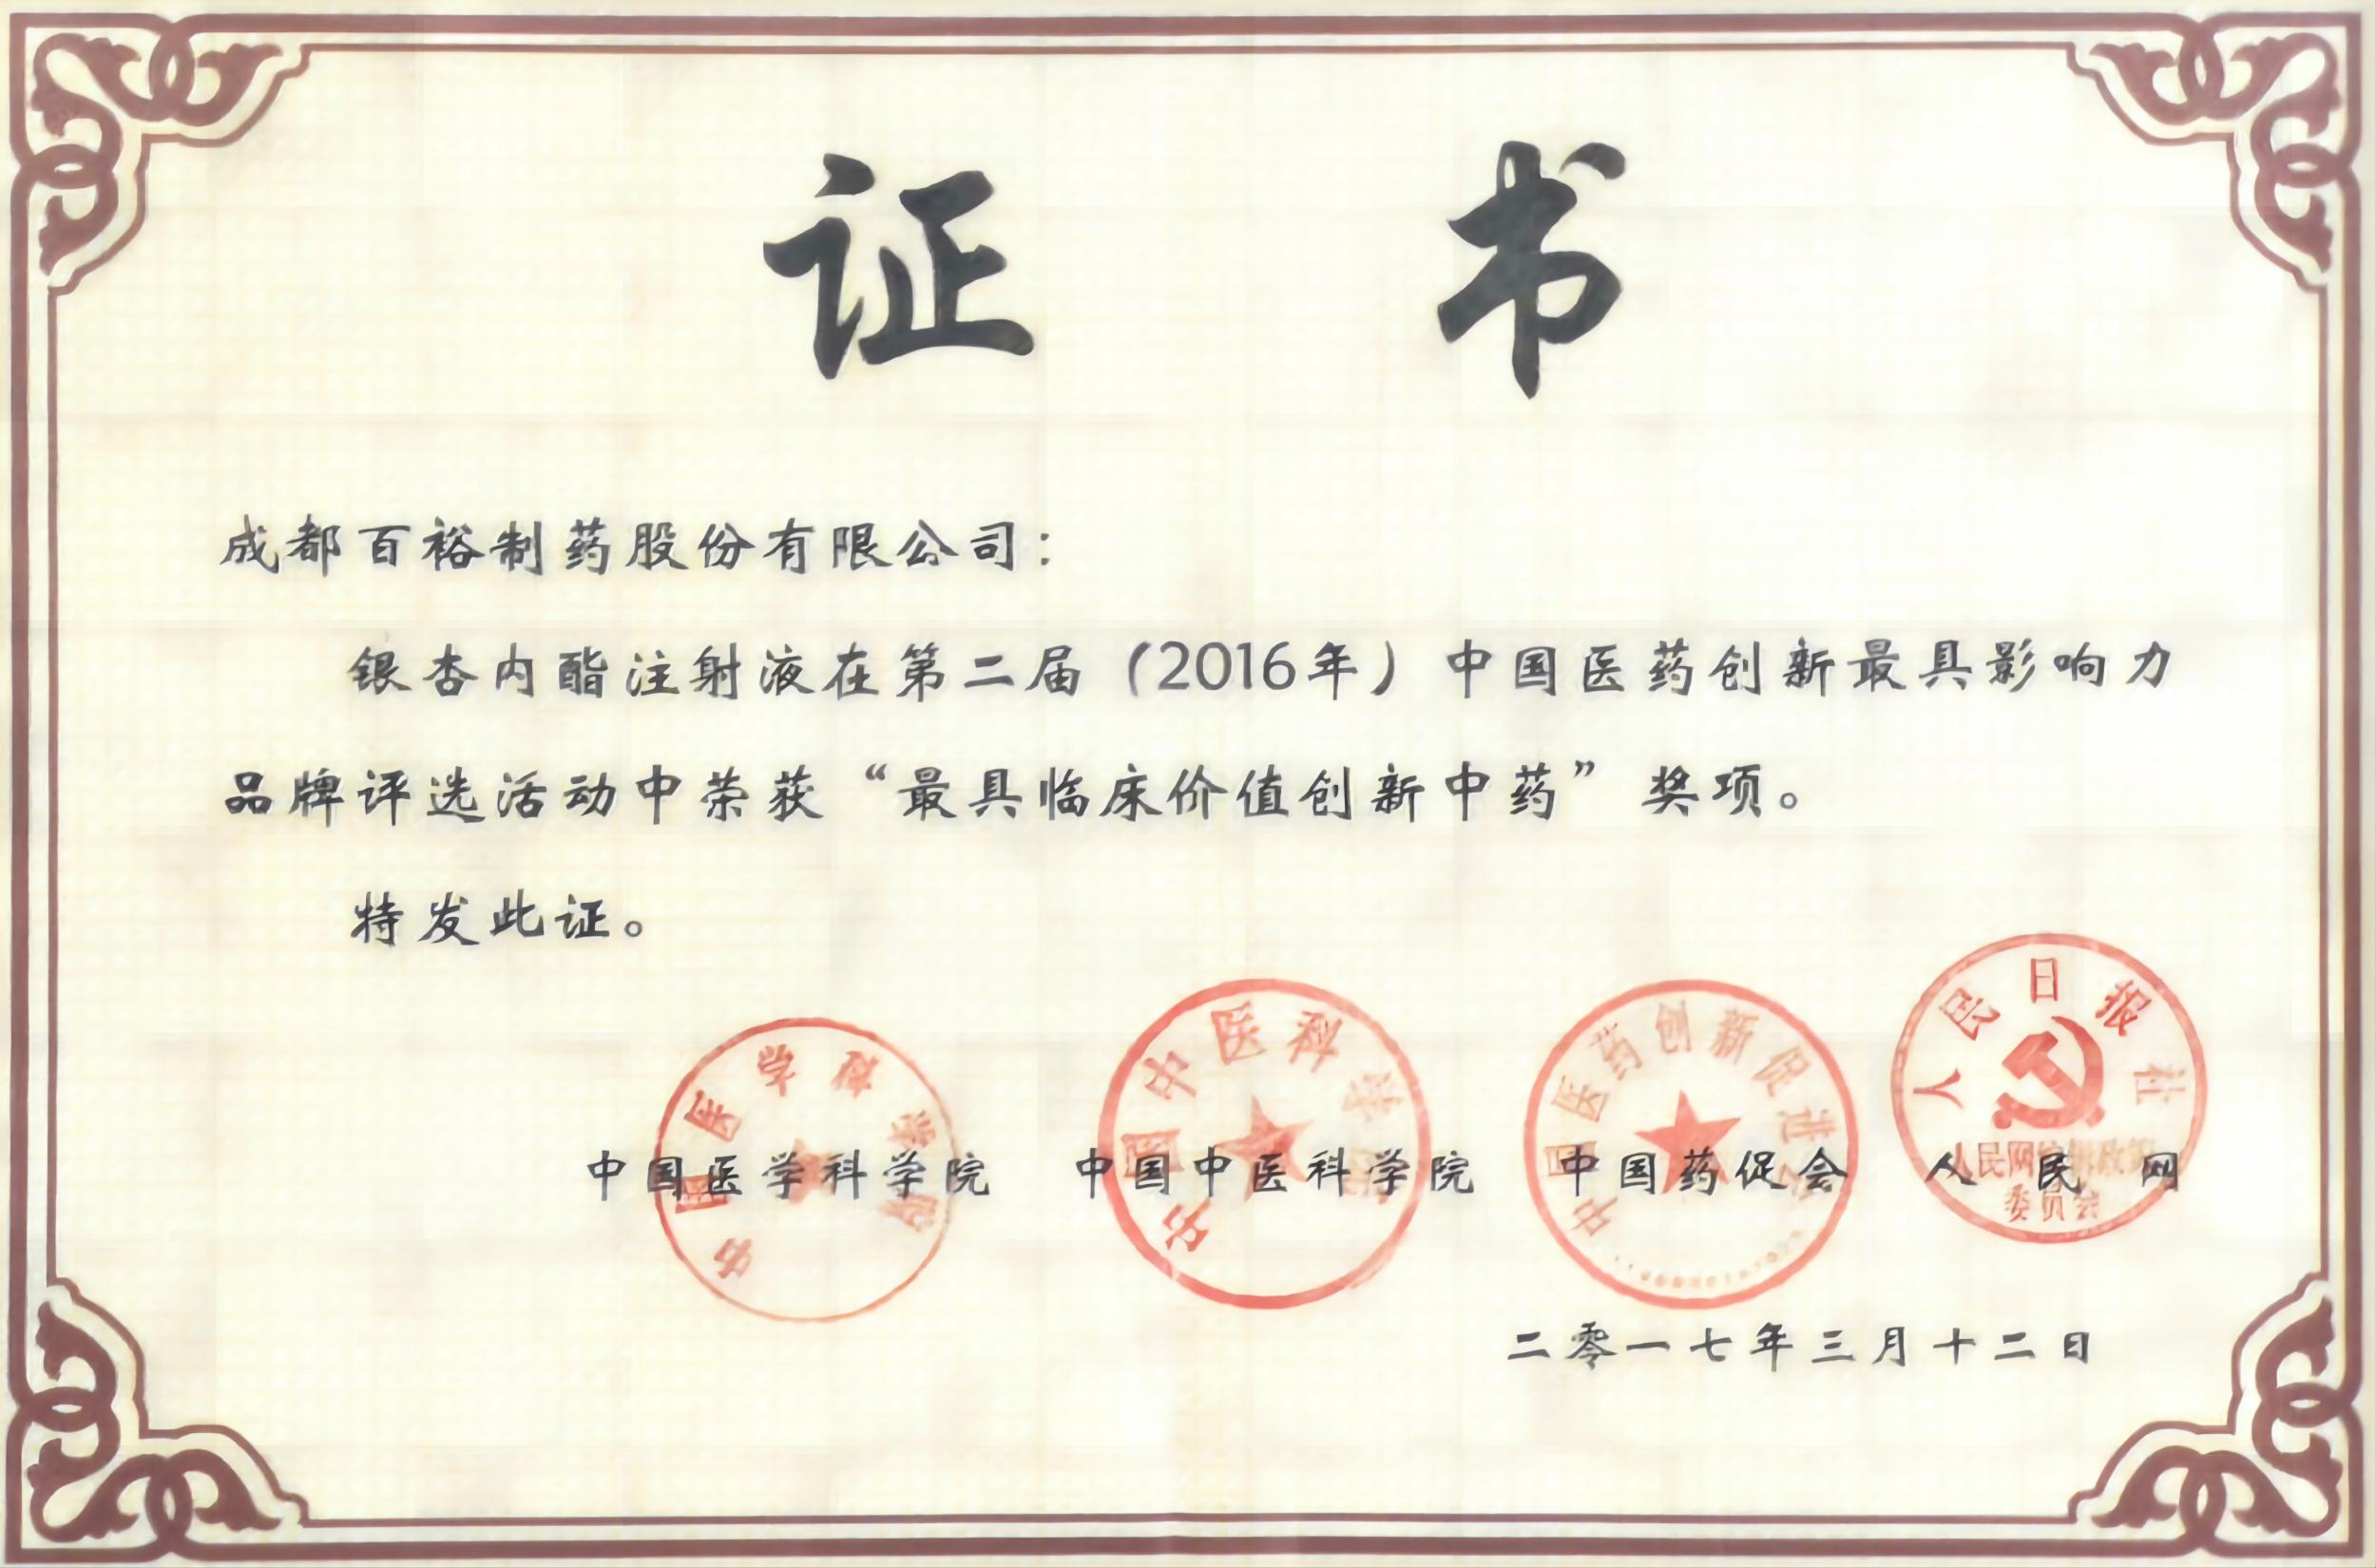 证 书
成都百裕制药股份有限公司：
银杏内酯注射液在第二届（2016年）中国医药创新最具影响力
品牌评选活动中荣获“最具临床价值创新中药”奖项。
特发此证。
中国医学科学院
中国中医科学院
中国医药创新促进
人民日报社
中国医学科学院 中国中医科学院 中国药促会 人民网
委员会
二零一七年三月十二日